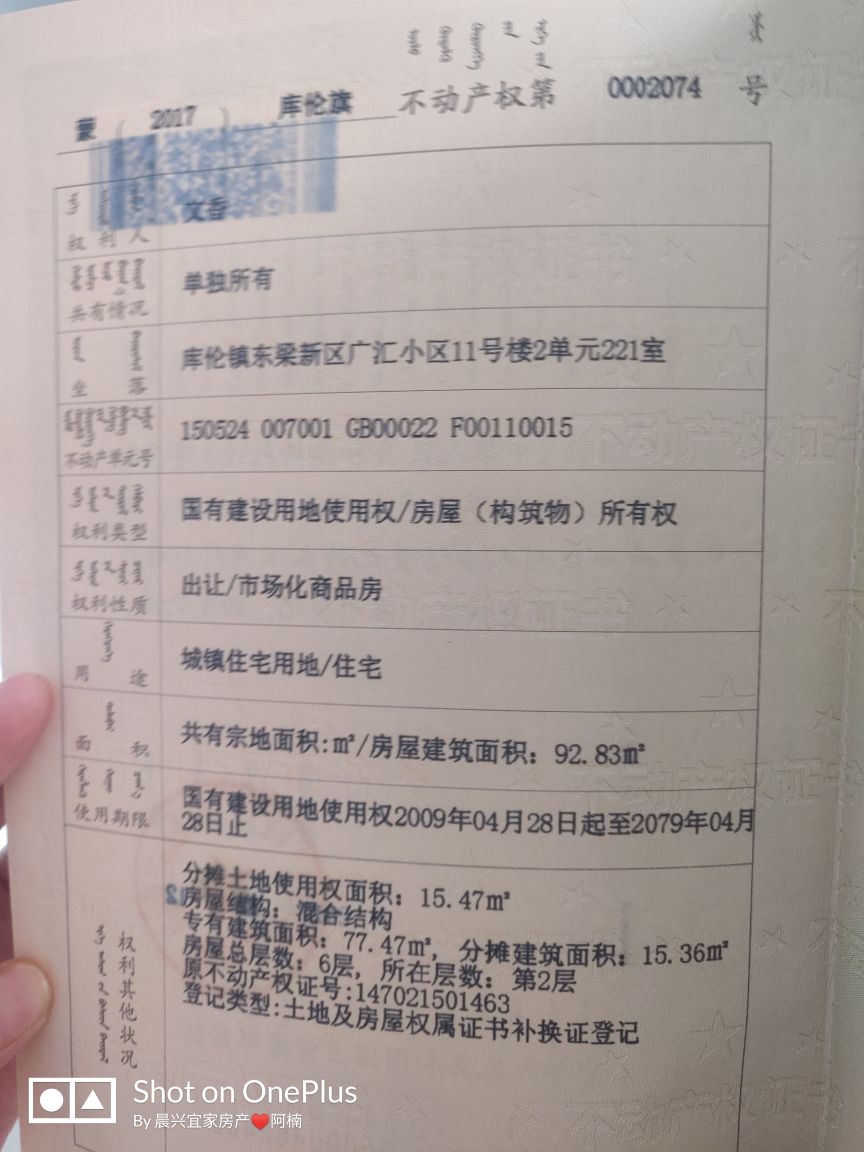 蒙（2017）库伦旗不动产权第0002074号
权利人 文香
共有情况 单独所有
坐落 库伦镇东梁新区广汇小区11号楼2单元221室
不动产单元号 150524 007001 GB00022 F00110015
权利类型 国有建设用地使用权/房屋（构筑物）所有权
权利性质 出让/市场化商品房
用途 城镇住宅用地/住宅
面积 共有宗地面积:㎡/房屋建筑面积：92.83㎡
使用期限 国有建设用地使用权2009年04月28日起至2079年04月
28日止
权利其他状况
分摊土地使用权面积：15.47㎡
房屋结构：混合结构
专有建筑面积：77.47㎡，分摊建筑面积：15.36㎡
房屋总层数：6层，所在层数：第2层
原不动产权证号:147021501463
登记类型:土地及房屋权属证书补换证登记
Shot on OnePlus
By 晨兴宜家房产❤️阿楠